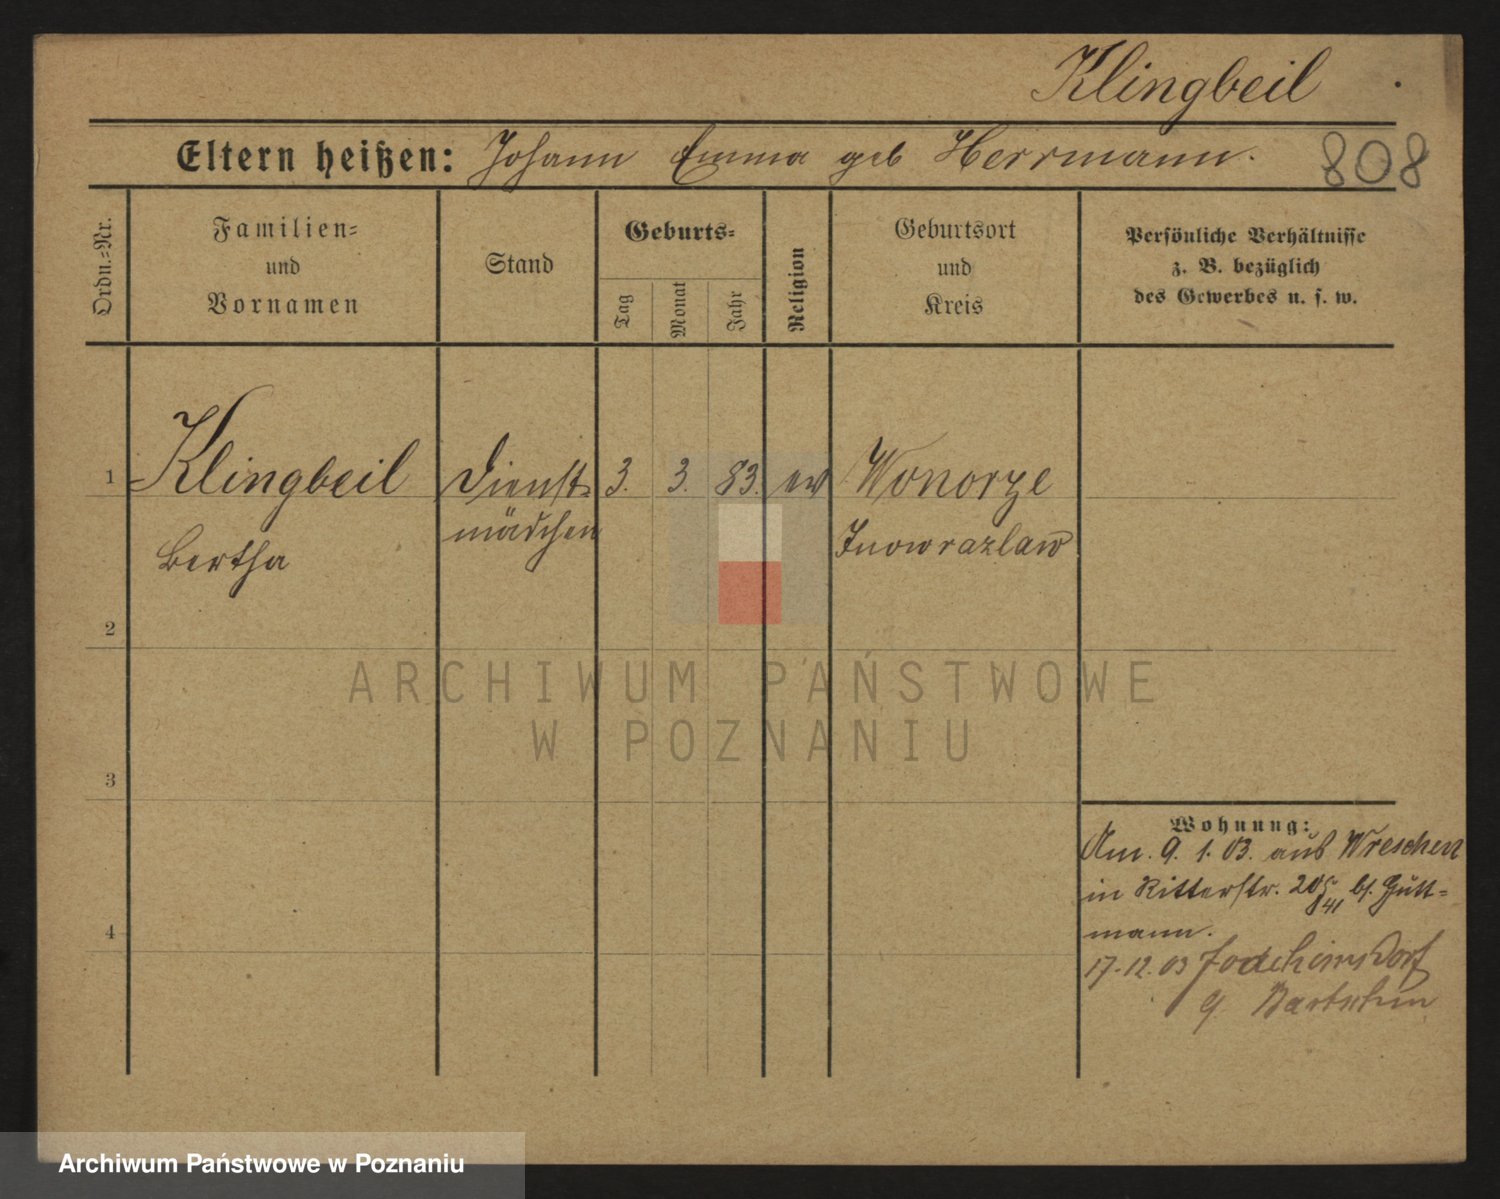 Klingbeil
Eltern heißen: Johann Emma geb Herrmann.
808
Ordn.-Nr.
Familien-
und
Vornamen
Stand
Geburts-
Tag
Monat
Jahr
Religion
Geburtsort
und
Kreis
Persönliche Verhältnisse
z. B. bezüglich
des Gewerbes u. s. w.
1 Klingbeil Dienst- 3. 3. 83. ev Wonorze
Bertha mädchen Inowrazlaw
2
ARCHIWUM PAŃSTWOWE
W POZNANIU
3
Wohnung:
Am. 9. 1. 03. aus Wreschen
in Ritterstr. 20 b. Gutt-
4
mann.
17.12.03
Archiwum Państwowe w Poznaniu